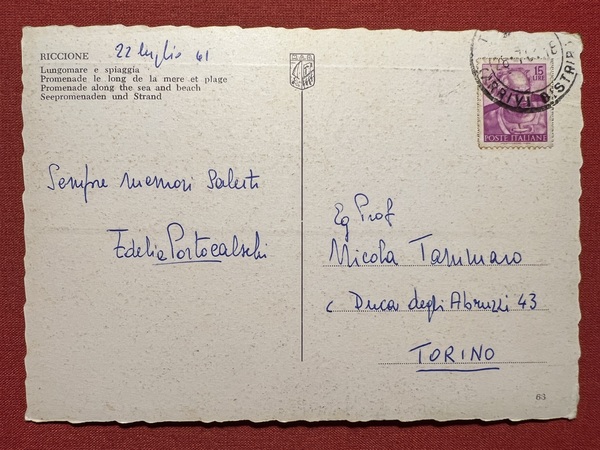 RICCIONE 22 luglio 61
Lungomare e spiaggia
Promenade le long de la mere et plage
Promenade along the sea and beach
Seepromenaden und Strand
15
LIRE
POSTE ITALIANE
ARRIVI DISTRIB
Sempre memori saluti
Edelia
Eg Prof
Nicola Tammaro
c Duca degli Abruzzi 43
TORINO
63